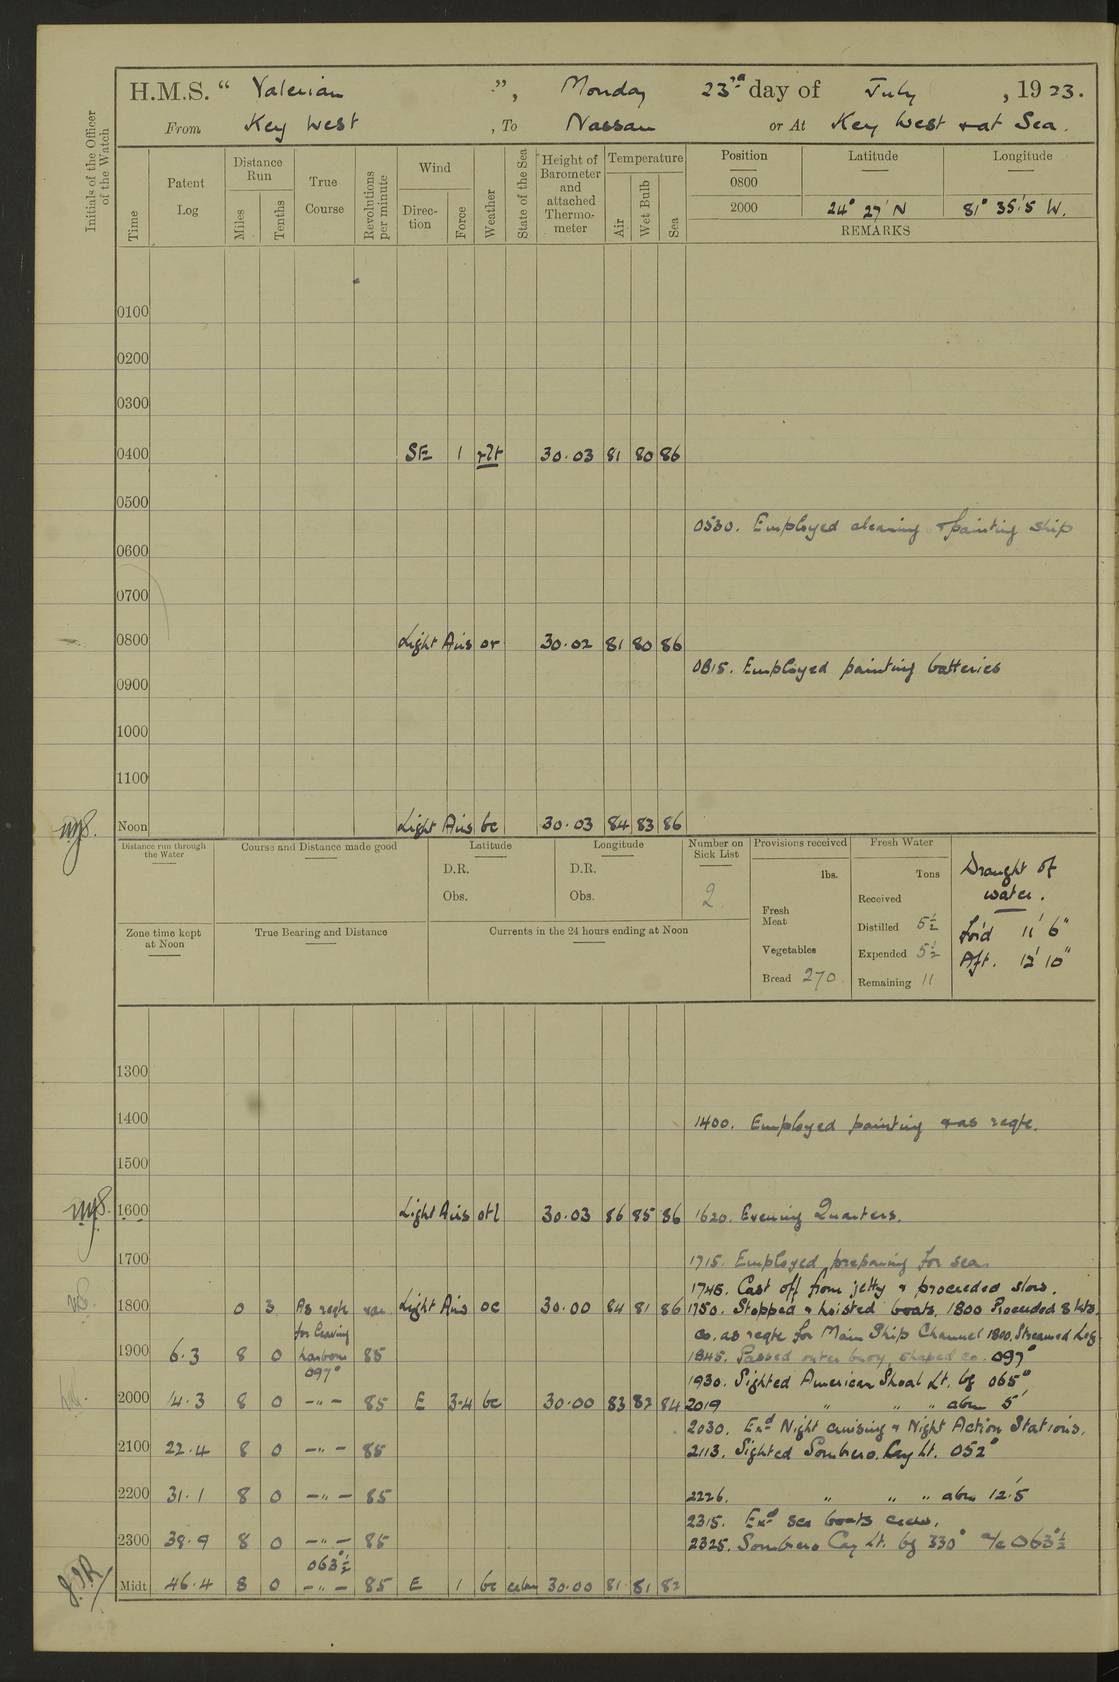 H.M.S. “ Valerian ”, Monday 23rd day of July, 1923.
From Key West, To Nassau or At Key West & at Sea.
Initials of the Officer of the Watch
Time Patent Log Distance Run Miles Tenths True Course Revolutions per minute Wind Direc-tion Force Weather State of the Sea Height of Barometer and attached Thermo-meter Temperature Air Wet Bulb Sea
Position Latitude Longitude
0800
2000 24° 27' N 81° 35'.5 W.
REMARKS
0100
0200
0300
0400 SE 1 rlt 30.03 81 80 86
0500
0530. Employed cleaning & painting ship
0600
0700
0800 Light Airs or 30.02 81 80 86
0815. Employed painting batteries
0900
1000
1100
Noon Light Airs bc 30.03 84 83 86
Distance run through the Water
Course and Distance made good
Latitude D.R. Obs.
Longitude D.R. Obs.
Number on Sick List 2
Provisions received lbs.
Fresh Meat
Vegetables
Bread 270
Fresh Water Tons
Received
Distilled 5½
Expended 5½
Remaining 11
Draught of water.
For'd 11' 6"
Aft. 12' 10"
Zone time kept at Noon
True Bearing and Distance
Currents in the 24 hours ending at Noon
1300
1400
1400. Employed painting & as reqte.
1500
1600 Light Airs otl 30.03 86 85 86 1620. Evening Quarters.
1700
1715. Employed preparing for sea.
1745. Cast off from jetty & proceeded slow.
1800 0 3 As reqte for leaving harbour var. Light Airs oc 30.00 84 81 86 1750. Stopped & hoisted boats. 1800 Proceeded 8 kts.
Co. as reqte for Main Ship Channel 1800. Streamed Log.
1900 6.3 8 0 097° 85 1845. Passed outer buoy, shaped co. 097°
1930. Sighted American Shoal Lt. bg 065°
2000 14.3 8 0 –"– 85 E 3-4 bc 30.00 83 82 84 2019 " " " abm 5'
2030. Exd Night cruising & Night Action Stations.
2100 22.4 8 0 –"– 85 2113. Sighted Sombrero Cay Lt. 052°
2200 31.1 8 0 –"– 85 2226. " " " abm 12'.5
2315. Exd sea boats crews.
2300 38.9 8 0 –"– 85 2325. Sombrero Cay Lt. bg 330° a/c 063°½
063°½
J.I.R. Midt 46.4 8 0 –"– 85 E 1 bc calm 30.00 81 81 82